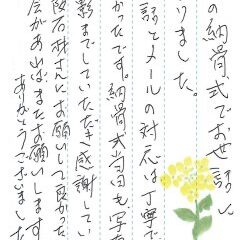 の納骨式でお世話に
りました。
話とメールの対応は丁寧で
かったです。納骨式当日も写真
影までしていただき感謝してい
阪石材さんにお願いして良かった
会があればまたお願いします
ありがとうございました